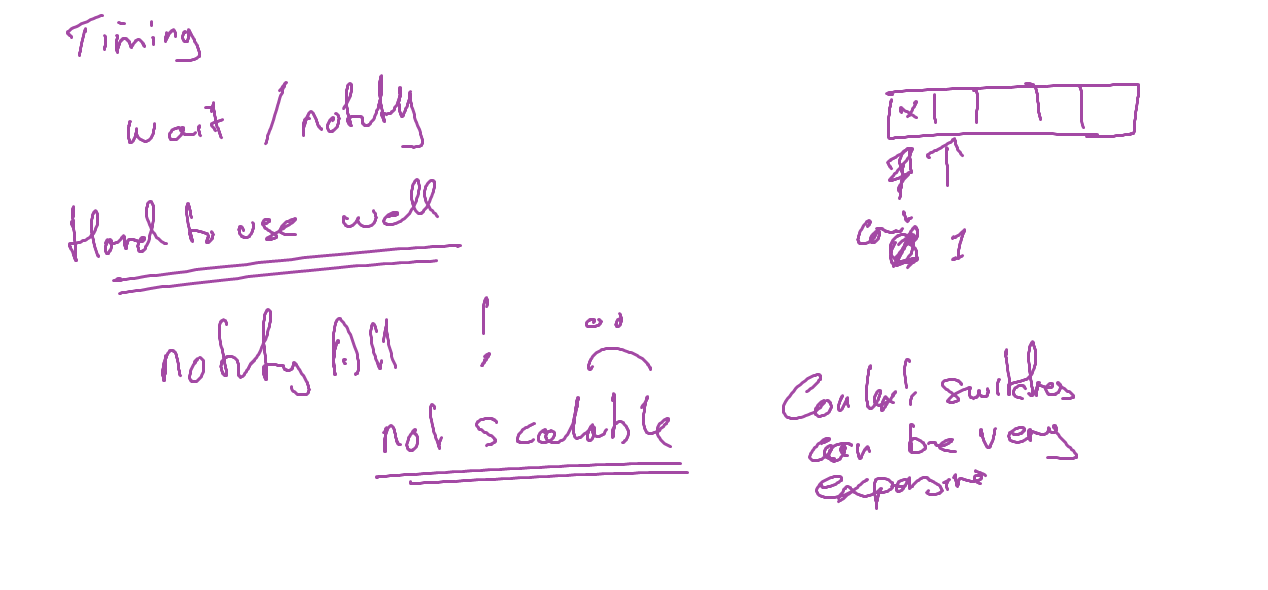 Timing
wait / notify
Hard to use well
notify All !
not scalable
x
1
Context switches
can be very
expensive